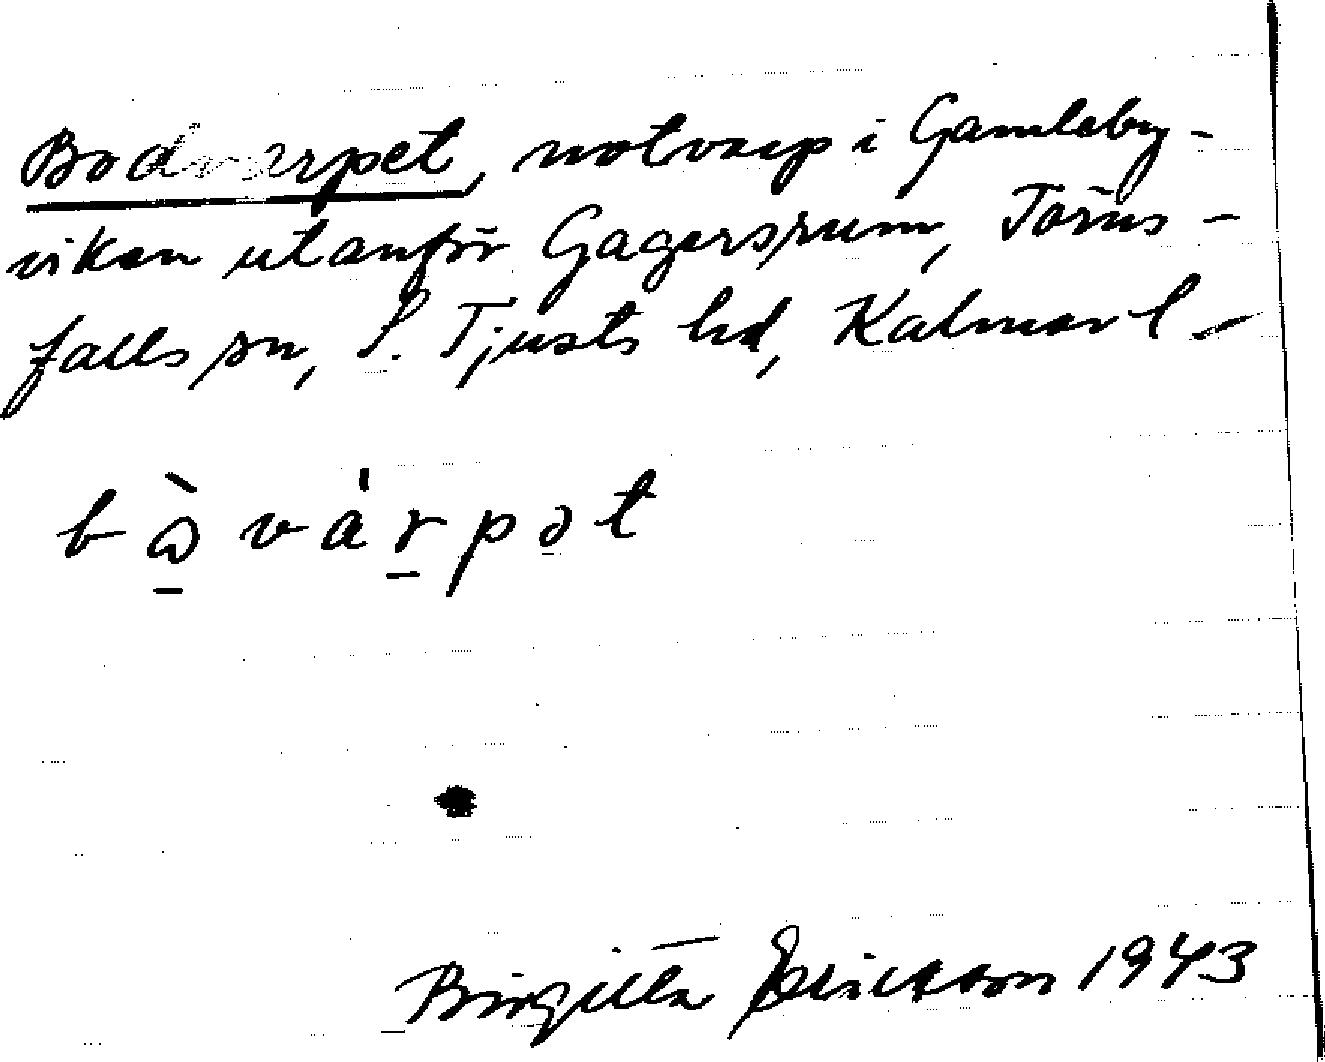 Bodvarpet, notvarp i Gamleby-
viken utanför Gagersrum, Törns-
falls sn, S. Tjusts hd, Kalmar l.
bὼ̠várpət
Birgitta Ericsson 1943